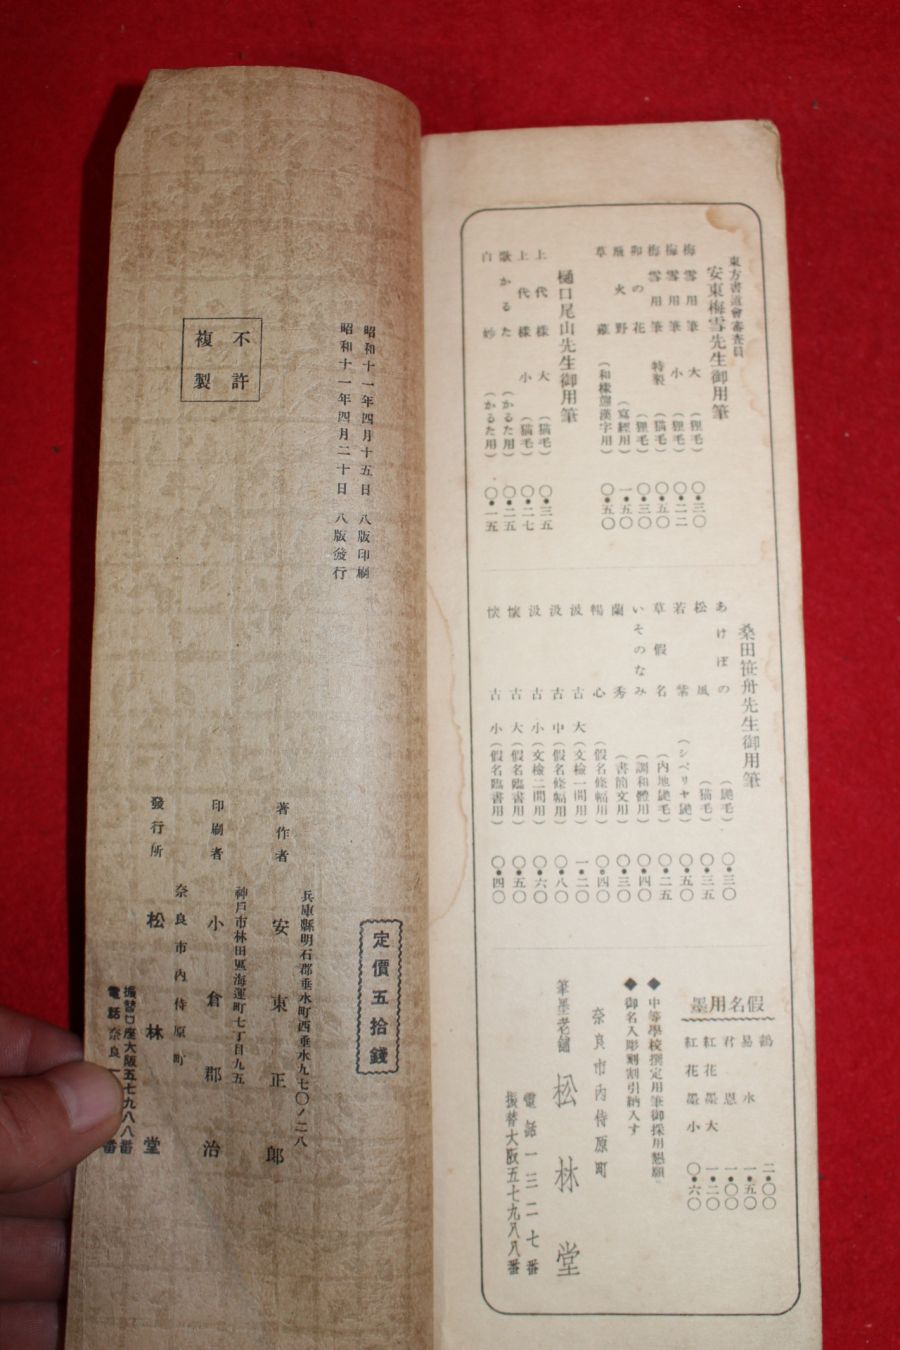 東方書道會審査員
安東梅雪先生御用筆
梅雪用筆 大 (狸毛) 〇・三〇
梅雪用筆 小 (狸毛) 〇・二二
梅雪用筆 特製 (猫毛) 〇・五〇
卯の花 (狸毛) 〇・三〇
飛火野 (寫經用) 一・五〇
草 (和樣兼漢字用) 〇・五〇
樋口尾山先生御用筆
上代樣 大 (猫毛) 〇・三五
上代樣 小 (猫毛) 〇・二七
歌かるた (かるた用) 〇・二五
白妙 (かるた用) 〇・一五
桑田笹舟先生御用筆
あけぼの (毛) 〇・三〇
松風 (猫毛) 〇・三五
若紫 (シベリヤ) 〇・五〇
草假名 (内地毛) 〇・二五
いそのなみ (調和體用) 〇・四〇
蘭秀 (書簡文用) 〇・三〇
暢心 (假名條幅用) 〇・四〇
汲古 大 (文檢一間用) 一・二〇
汲古 中 (假名條幅用) 〇・八〇
汲古 小 (文檢二間用) 〇・六〇
懷古 大 (假名臨書用) 〇・五〇
懷古 小 (假名臨書用) 〇・四〇
假名用墨
鶴 二・〇〇
易水 一・五〇
君恩 一・〇〇
紅花墨 大 一・二〇
紅花墨 小 〇・六〇
◆中等學校撰定用筆御採用懇願
◆御名入彫刻割引納入す
奈良市内侍原町
筆墨老舖 松林堂
電話一三二七番
振替大阪五七九八八番
昭和十一年四月十五日 八版印刷
昭和十一年四月二十日 八版發行
不許
複製
定價五拾錢
兵庫縣明石郡垂水町西垂水九七〇ノ二八
著作者 安東正郎
神戸市林田區海運町七丁目九五
印刷者 小倉郡治
奈良市内侍原町
發行所 松林堂
振替口座大阪五七九八八番
電話奈良一 番